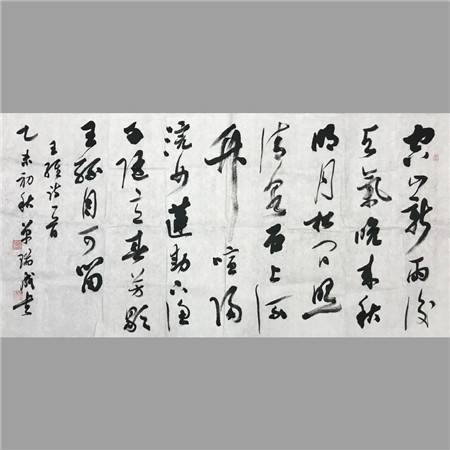 空山新雨後
天氣晚来秋
明月松间照
清泉石上流
竹喧归
浣女蓮動下渔
舟随意春芳歇
王孫自可留
王維诗一首
乙未初秋 瑞成书